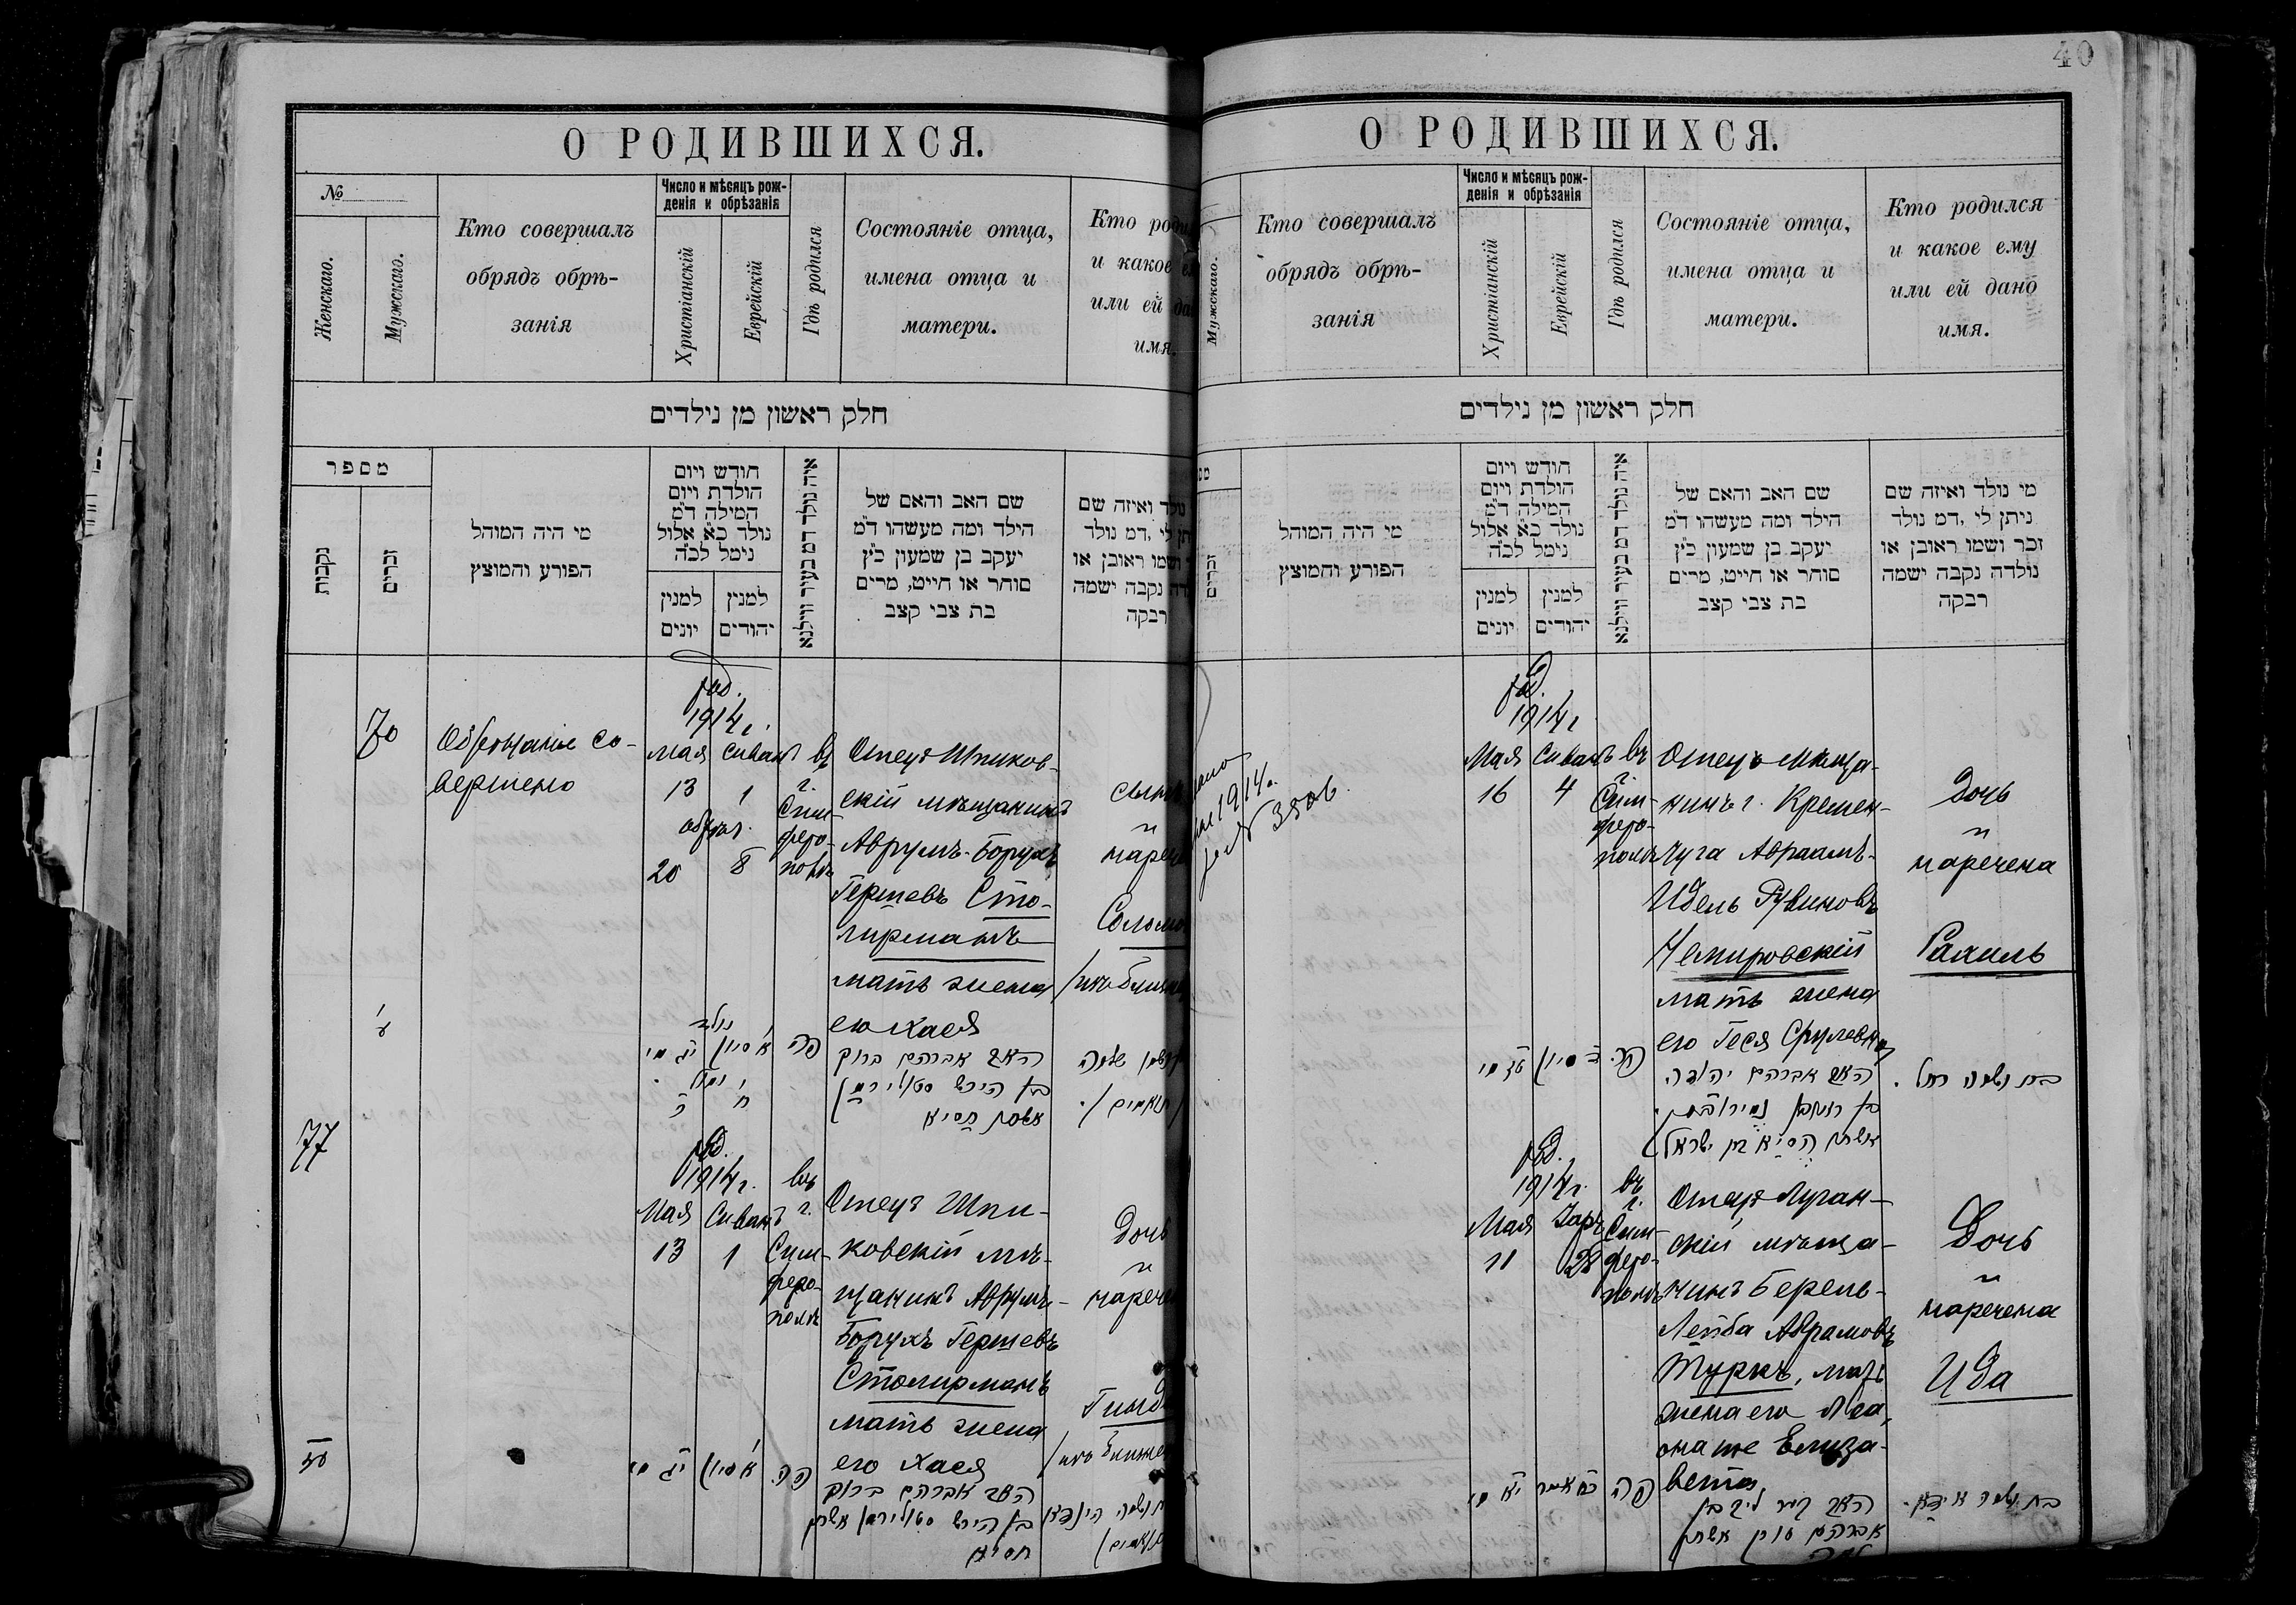 40
О РОДИВШИХСЯ.
№
Женскаго.
Мужскаго.
Кто совершалъ
обрядъ обрѣ-
занія
Число и мѣсяцъ рож-
денія и обрѣзанія
Христіанскій
Еврейскій
Гдѣ родился
Состояніе отца,
имена отца и
матери.
Кто
и какое
или ей
имя.
חלק ראשון מן נילדים
מספר
נקבות
זכרים
מי היה המוהל
הפורע והמוצץ
חודש ויום
הולדת ויום
המילה ד״מ
נולד כ״א אלול
נימל לכ״ה
למנין
יונים
למנין
יהודים
איה נולד דמ בעיר ווילנא
שם האב והאם של
הילד ומה מעשהו ד״מ
יעקב בן שמעון כ״ץ
סוחר או חייט, מרים
בת צבי קצב
נולד ואיזה שם
לי, דמ נולד
ושמו ראובן או
נקבה ישמה
רבקה
70
Обрѣзаніе со-
вершено
род.
1914 г.
Мая Сиванъ
13 1
обрѣз.
20 8
въ
г.
Сим-
феро-
полѣ
Отецъ Шпиков-
скій мѣщанинъ
Аврумъ-Борухъ
Гершевъ Сто-
лирманъ
мать жена
его Хася
сынъ
и
нарече
Соломо
נולד
י״ג מי
א סיון
פה
האב אברהם ברוך
בן הירש סטולירמן
אשתו חסיא
שלמה
77
род.
1914 г.
Мая Сиванъ
13 1
въ
г.
Сим-
феро-
полѣ
Отецъ Шпи-
ковскій мѣ-
щанинъ Аврумъ-
Борухъ Гершевъ
Столирманъ
мать жена
его Хася
Дочь
и
нарече
י״ג מי
א סיון
פה
האב אברהם ברוך
בן הירש סטולירמן אשתו
חסיא
О РОДИВШИХСЯ.
Мужскаго.
Кто совершалъ
обрядъ обрѣ-
занія
Число и мѣсяцъ рож-
денія и обрѣзанія
Христіанскій
Еврейскій
Гдѣ родился
Состояніе отца,
имена отца и
матери.
Кто родился
и какое ему
или ей дано
имя.
חלק ראשון מן נילדים
זכרים
מי היה המוהל
הפורע והמוצץ
חודש ויום
הולדת ויום
המילה ד״מ
נולד כ״א אלול
נימל לכ״ה
למנין
יונים
למנין
יהודים
איה נולד דמ בעיר ווילנא
שם האב והאם של
הילד ומה מעשהו ד״מ
יעקב בן שמעון כ״ץ
סוחר או חייט, מרים
בת צבי קצב
מי נולד ואיזה שם
ניתן לי, דמ נולד
זכר ושמו ראובן או
נולדה נקבה ישמה
רבקה
1914 г.
род.
1914 г
Мая Сиванъ
16 4
въ
г.
Сим-
феро-
полѣ
Отецъ мѣща-
нинъ г. Кремен-
чуга Авраамъ-
Идель Рувиновъ
Немировскій
мать жена
его Геся Срулевна
Дочь
и
наречена
Рахиль
ט״ז מי
ד סיון
פה
האב אברהם יהודה
בן ראובן נמירובסקי
אשתו הסיא בת ישראל
בת ושמה רחל
род.
1914 г.
Мая Іаръ
11 28
въ
г.
Сим-
феро-
полѣ
Отецъ Луган-
скій мѣща-
нинъ Берель-
Лейба Аврамовъ
Туркъ, мать
жена его Лея,
она же Елиза-
вета
Дочь
и
наречена
Ида
י״א מי
פה
האב דוב ליב בן
אברהם טורק אשתו
לאה
בת ושמה אידא